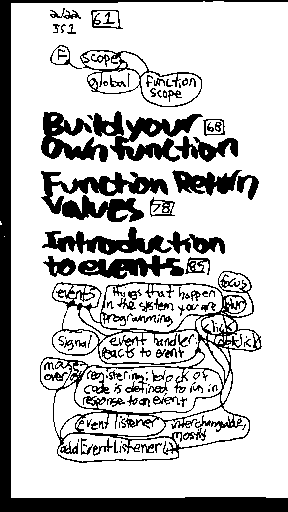 2/22
351
61
F
scope
global
function
scope
Build your
own function
68
Function Return
Values
78
Introduction
to events
85
events
things that happen
in the system you are
programming
focus
blur
click
dblclick
signal
event handler
reacts to event
mouse
over
registering: block of
code is defined to run in
response to an event
event listener
interchangeable,
mostly
addEventListener